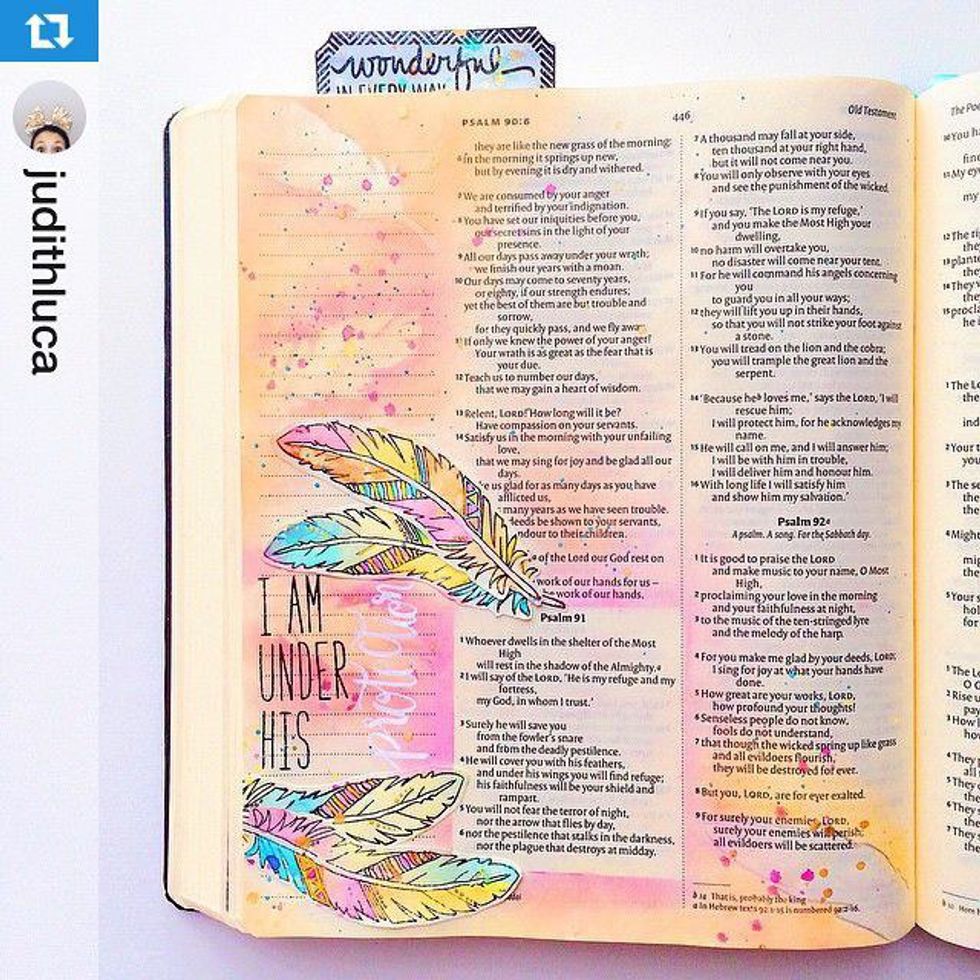 judithluca
wonderful
IN EVERY WAY
PSALM 90:6
446
Old Testament
they are like the new grass of the morning:
6 In the morning it springs up new,
but by evening it is dry and withered.
7 We are consumed by your anger
and terrified by your indignation.
8 You have set our iniquities before you,
our secret sins in the light of your
presence.
9 All our days pass away under your wrath;
we finish our years with a moan.
10 Our days may come to seventy years,
or eighty, if our strength endures;
yet the best of them are but trouble and
sorrow,
for they quickly pass, and we fly away.
11 If only we knew the power of your anger!
Your wrath is as great as the fear that is
your due.
12 Teach us to number our days,
that we may gain a heart of wisdom.
13 Relent, LORD! How long will it be?
Have compassion on your servants.
14 Satisfy us in the morning with your unfailing
love,
that we may sing for joy and be glad all our
days.
us glad for as many days as you have
afflicted us,
many years as we have seen trouble.
deeds be shown to your servants,
to their children.
of the Lord our God rest on
work of our hands for us –
work of our hands.
Psalm 91
1 Whoever dwells in the shelter of the Most
High
will rest in the shadow of the Almighty.a
2 I will say of the LORD, 'He is my refuge and my
fortress,
my God, in whom I trust.'
3 Surely he will save you
from the fowler's snare
and from the deadly pestilence.
4 He will cover you with his feathers,
and under his wings you will find refuge;
his faithfulness will be your shield and
rampart.
5 You will not fear the terror of night,
nor the arrow that flies by day,
6 nor the pestilence that stalks in the darkness,
nor the plague that destroys at midday.
I AM
UNDER
HIS
7 A thousand may fall at your side,
ten thousand at your right hand,
but it will not come near you.
8 You will only observe with your eyes
and see the punishment of the wicked.
9 If you say, 'The LORD is my refuge,'
and you make the Most High your
dwelling,
10 no harm will overtake you,
no disaster will come near your tent.
11 For he will command his angels concerning
you
to guard you in all your ways;
12 they will lift you up in their hands,
so that you will not strike your foot against
a stone.
13 You will tread on the lion and the cobra;
you will trample the great lion and the
serpent.
14 'Because he b loves me,' says the LORD, 'I will
rescue him;
I will protect him, for he acknowledges my
name.
15 He will call on me, and I will answer him;
I will be with him in trouble,
I will deliver him and honour him.
16 With long life I will satisfy him
and show him my salvation.'
Psalm 92a
A psalm. A song. For the Sabbath day.
1 It is good to praise the LORD
and make music to your name, O Most
High,
2 proclaiming your love in the morning
and your faithfulness at night,
3 to the music of the ten-stringed lyre
and the melody of the harp.
4 For you make me glad by your deeds, LORD;
I sing for joy at what your hands have
done.
5 How great are your works, LORD,
how profound your thoughts!
6 Senseless people do not know,
fools do not understand,
7 that though the wicked spring up like grass
and all evildoers flourish,
they will be destroyed for ever.
8 But you, LORD, are for ever exalted.
9 For surely your enemies, LORD,
surely your enemies will perish;
all evildoers will be scattered.
b 14 That is, probably the king
a In Hebrew texts 92:1-15 is numbered 92:2-16.